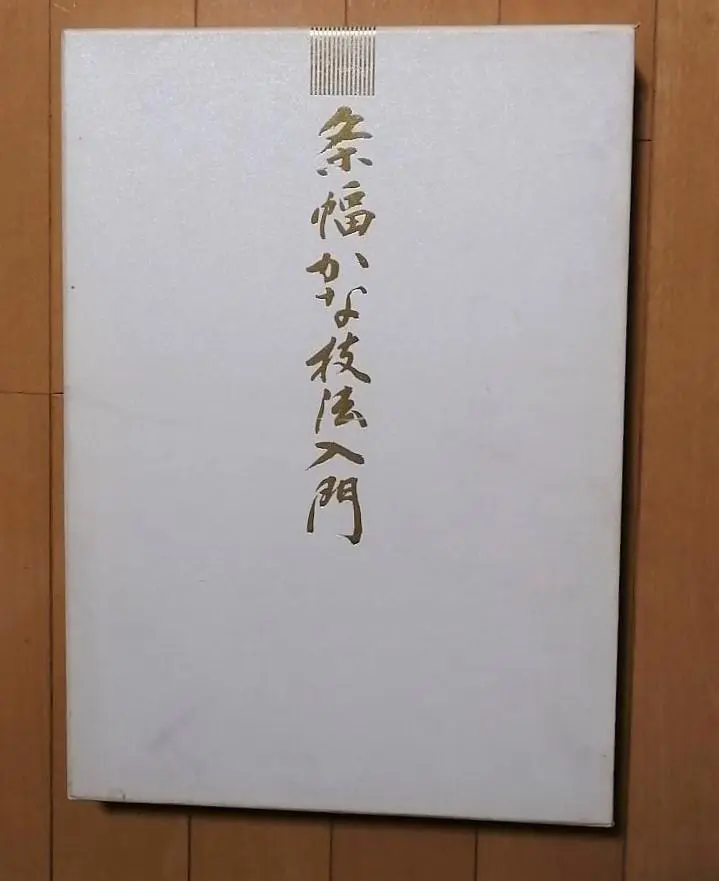 条幅かな技法入門